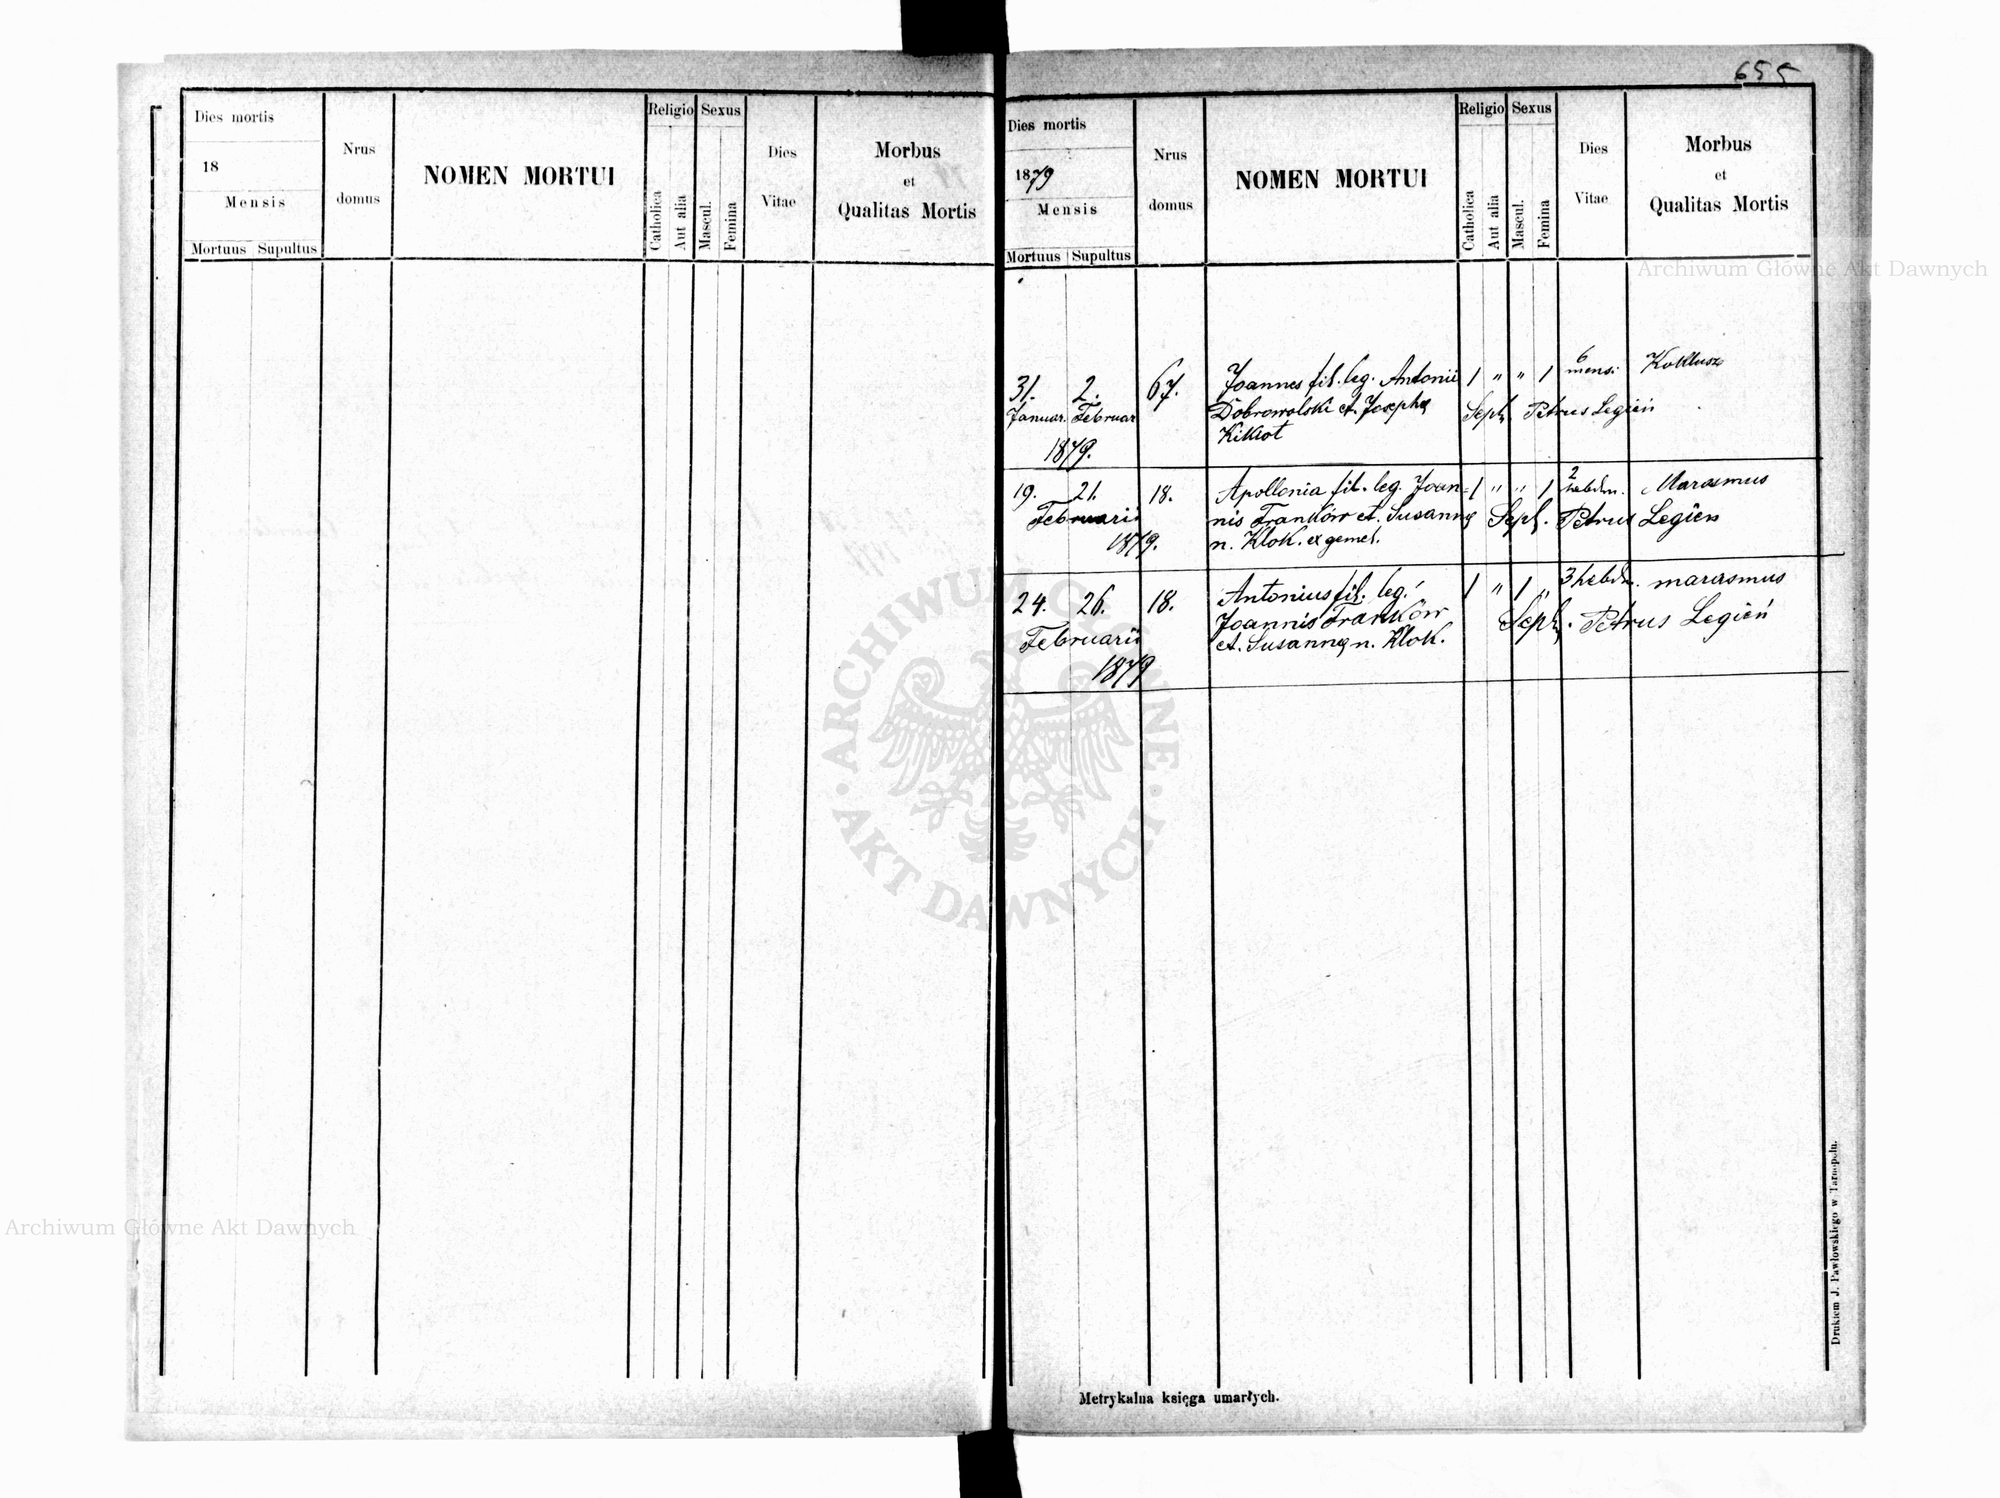 655
Dies mortis
18
Mensis
Mortuus Supultus
Nrus
domus
NOMEN MORTUI
Religio
Catholica
Aut alia
Sexus
Mascul.
Femina
Dies
Vitae
Morbus
et
Qualitas Mortis
Dies mortis
1879
Mensis
Mortuus Supultus
Nrus
domus
NOMEN MORTUI
Religio
Catholica
Aut alia
Sexus
Mascul.
Femina
Dies
Vitae
Morbus
et
Qualitas Mortis
31. 2. 67. Joannes fil. leg. Antonii 1 " " 1 6 mensi. Koklusz
Januar. Februar Dobrowolski et. Josephę Seph Petrus Legień
1879. Kikiot
19. 21. 18. Apollonia fil. leg. Joan= 1 " " 1 2 hebdm. Marasmus
Februarii nis Franków et. Susannę Seph. Petrus Legień
1879. n. Klok. ex gemel.
24. 26. 18. Antonius fil. leg. 1 " 1 " 3 hebdm. marasmus
Februarii Joannis Franków Seph. Petrus Legień
et. Susannę n. Klok.
1879
Metrykalna księga umarłych.
Drukiem J. Pawłowskiego w Tarnopolu.
Archiwum Główne Akt Dawnych
Archiwum Główne Akt Dawnych
ARCHIWUM GŁÓWNE
AKT DAWNYCH